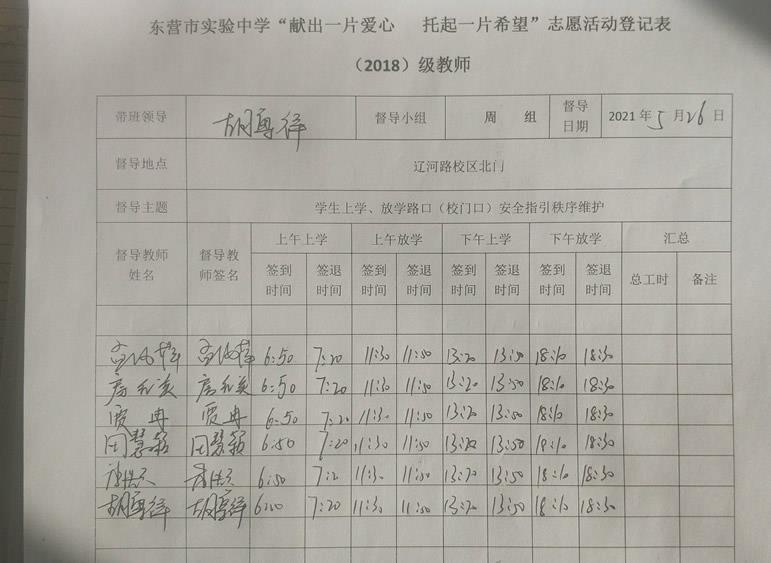 东营市实验中学“献出一片爱心 托起一片希望”志愿活动登记表
（2018）级教师
带班领导 督导小组 周 组 督导日期 2021年5月26日
督导地点 辽河路校区北门
督导主题 学生上学、放学路口（校门口）安全指引秩序维护
督导教师姓名 督导教师签名 上午上学 上午放学 下午上学 下午放学 汇总
签到时间 签退时间 签到时间 签退时间 签到时间 签退时间 签到时间 签退时间 总工时 备注
6:50 7:20 11:30 11:50 13:20 13:50 18:10 18:30
6:50 7:20 11:30 11:50 13:20 13:50 18:10 18:30
贾冉 贾冉 6:50 7:20 11:30 11:50 13:20 13:50 18:10 18:30
田慧颖 田慧颖 6:50 7:20 11:30 11:50 13:20 13:50 18:30
6:50 11:30 11:50 13:20 13:50 18:10 18:30
7:20 11:30 11:50 13:20 13:50 18:10 18:30